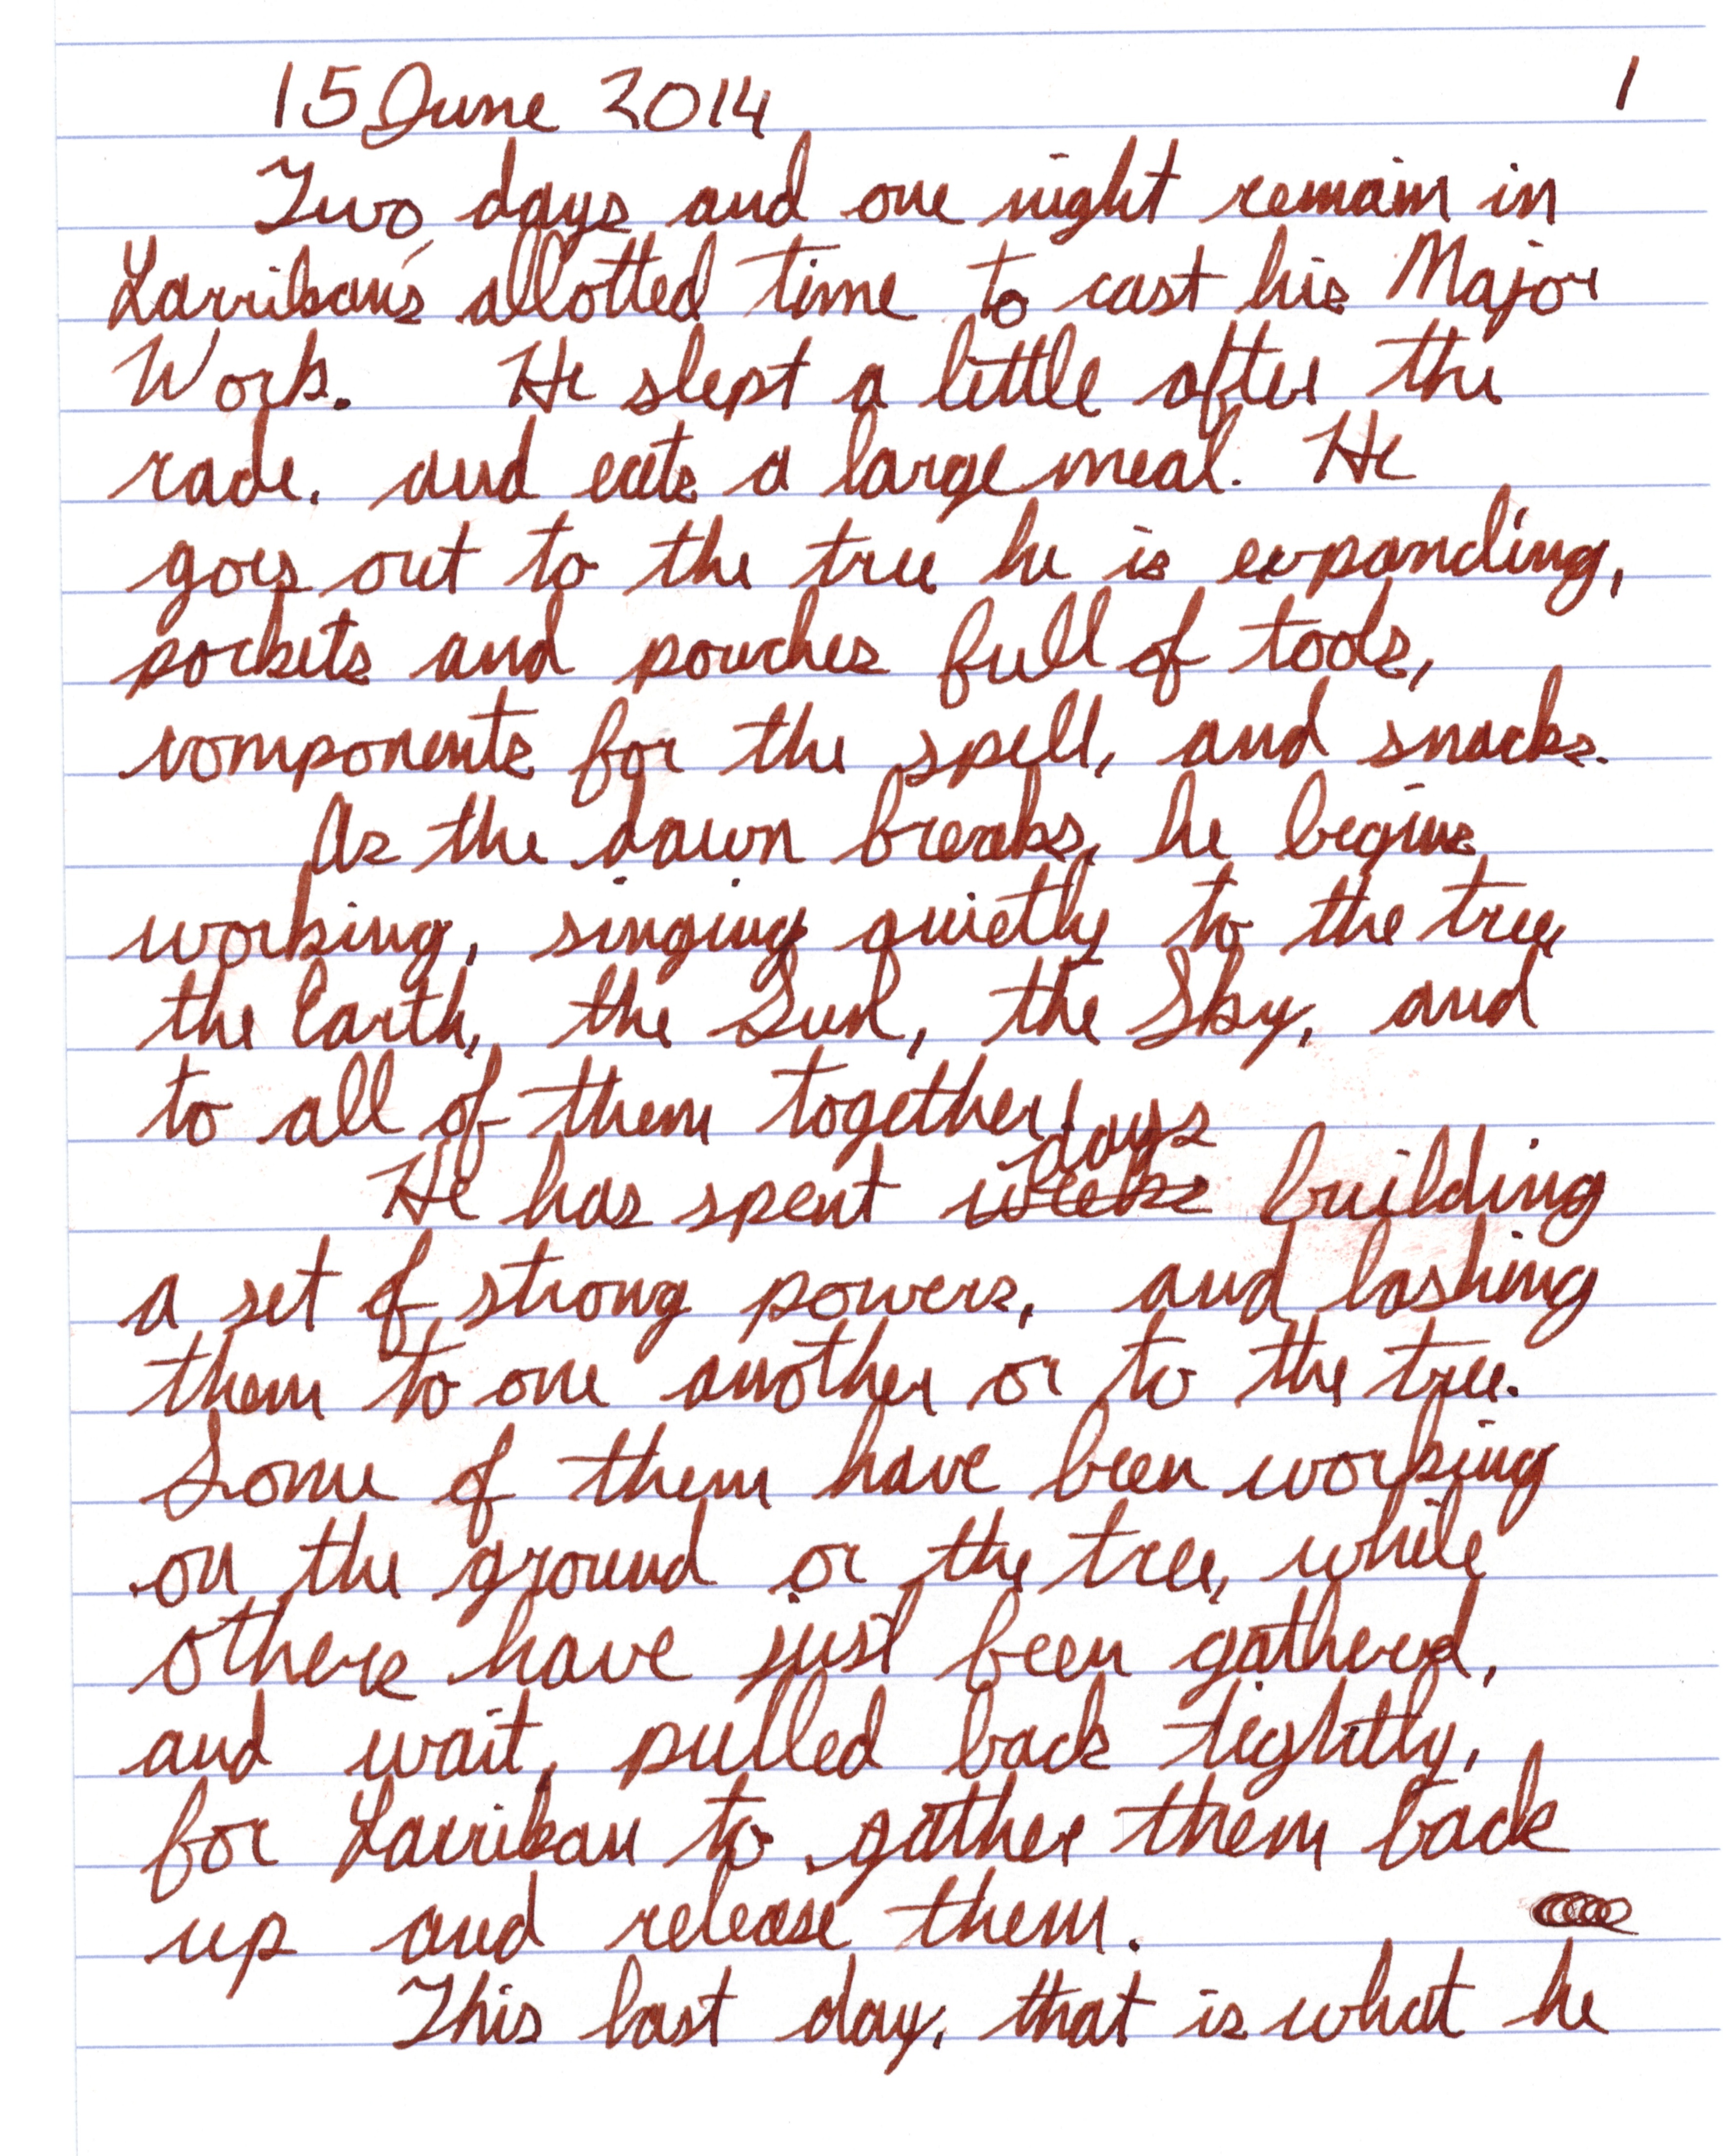 15 June 2014 1
Two days and one night remain in
Larriban's allotted time to cast his Major
Work. He slept a little after the
rade, and eats a large meal. He
goes out to the tree he is expanding,
pockets and pouches full of tools,
components for the spell, and snacks.
As the dawn breaks, he begins
working, singing quietly to the tree,
the Earth, the Sun, the Sky, and
to all of them together.
days
He has spent weeks building
a set of strong powers, and lashing
them to one another or to the tree.
Some of them have been working
on the ground or the tree, while
others have just been gathered,
and wait, pulled back tightly,
for Larriban to gather them back
up and release them.
This last day, that is what he